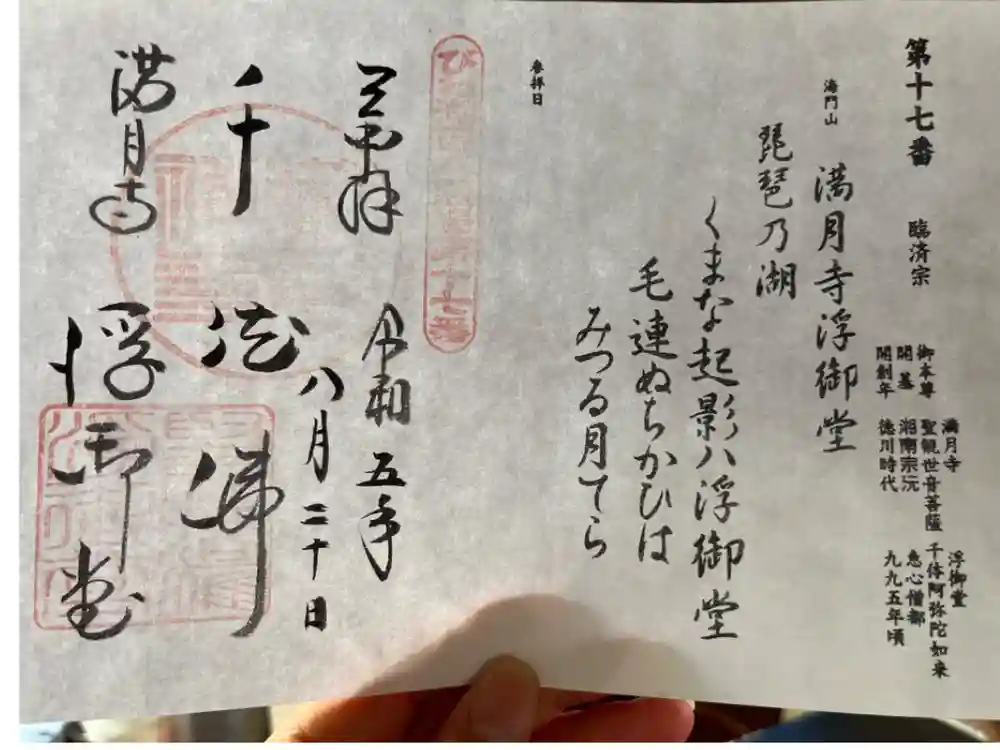 第十七番 臨済宗
満月寺 浮御堂
御本尊 聖観世音菩薩 千体阿弥陀如来
開基 湘南宗沅 恵心僧都
開創年 徳川時代 九九五年頃
海門山
満月寺浮御堂
琵琶乃湖
くまな起影ハ浮御堂
毛連ぬちかひは
みつる月てら
参拝日
奉拝 令和五年
八月二十日
千体佛
満月寺 浮御堂